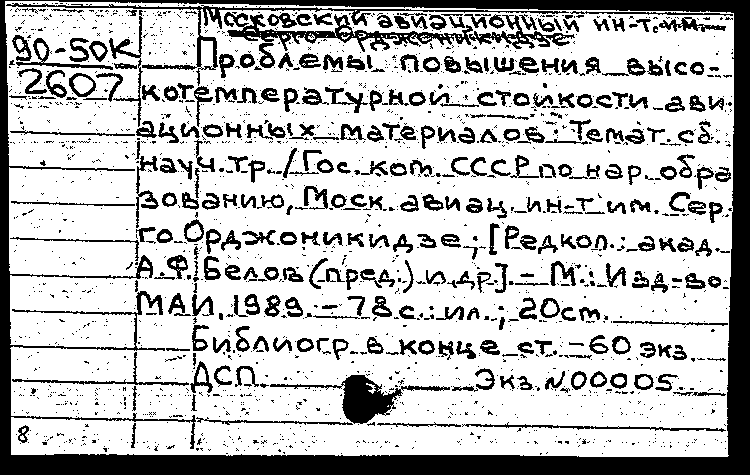 Московский авиационный ин-т. им.
Серго Орджоникидзе
90-50К
2607
Проблемы повышения высо-
котемпературной стойкости ави
ационных материалов: Темат. сб.
науч. тр. / Гос. ком. СССР по нар. обра
зованию, Моск. авиац. ин-т им. Сер-
го Орджоникидзе; [Редкол.: акад.
А.Ф. Белов (пред.) и др]. - М.: Изд-во
МАИ, 1989. - 78 с.: ил.; 20 см.
Библиогр. в конце ст. - 60 экз.
ДСП
Экз. N 00005
8